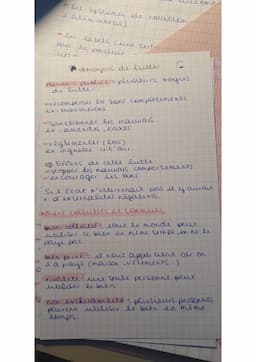 - Les systèmes de notation
- Les labels
① Moyens de lutte
Pouvoirs publics : plusieurs moyens
de lutte.
→ récompenser les bons comportements
ex : subventions
→ sanctionner les mauvais
ex : amendes, taxes
→ réglementer (lois)
⇒ Effets de cette lutte
→ stopper les mauvais comportements
→ encourager les bons
Si l'État n'intervenait pas il y aurait
+ d'externalités négatives.
Biens collectifs et communs
bien collectif : tout le monde peut
utiliser le bien en même temps, on ne le
paye pas.
bien privé : il nous appartient car on
l'a payé (maison, vêtements...)
rivalité : une seule personne peut
utiliser le bien
non excluabilité : plusieurs personnes
peuvent utiliser le bien en même
temps.